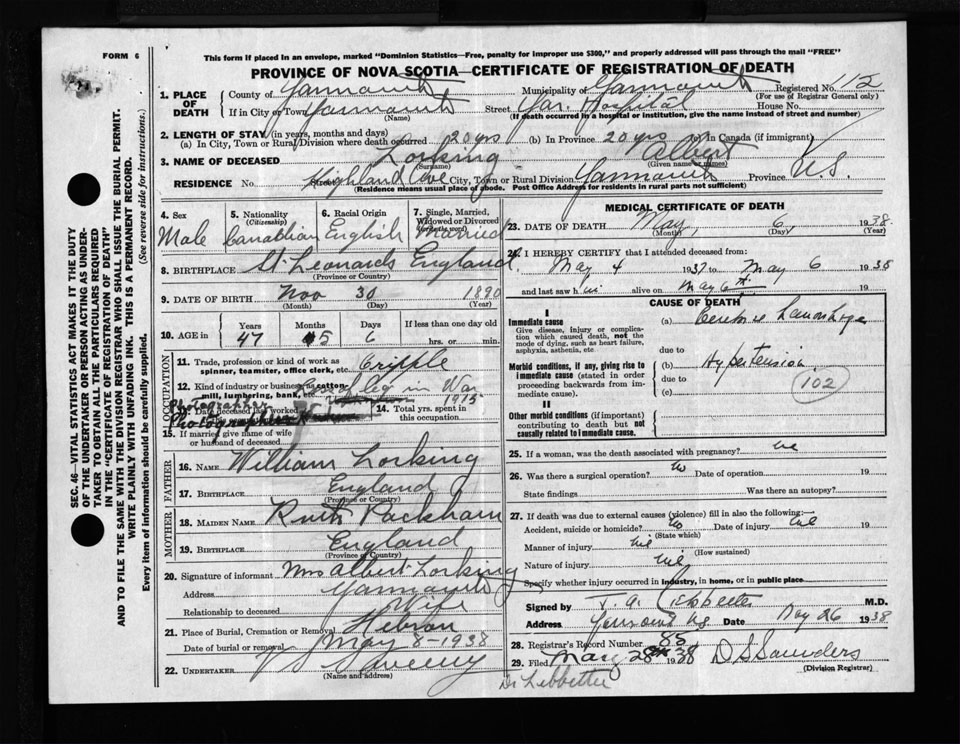 FORM 6
This form if placed in an envelope, marked "Dominion Statistics—Free, penalty for improper use $300," and properly addressed will pass through the mail "FREE"
PROVINCE OF NOVA SCOTIA—CERTIFICATE OF REGISTRATION OF DEATH
SEC. 46—VITAL STATISTICS ACT MAKES IT THE DUTY
OF THE UNDERTAKER OR PERSON ACTING AS UNDER-
TAKER TO OBTAIN ALL THE PARTICULARS REQUIRED
IN THE "CERTIFICATE OF REGISTRATION OF DEATH"
AND TO FILE THE SAME WITH THE DIVISION REGISTRAR WHO SHALL ISSUE THE BURIAL PERMIT.
WRITE PLAINLY WITH UNFADING INK. THIS IS A PERMANENT RECORD.
Every item of information should be carefully supplied. (See reverse side for instructions.)
1. PLACE OF DEATH
County of Yarmouth Municipality of Yarmouth Registered No. 112
(For use of Registrar General only)
If in City or Town Yarmouth Street Yar. Hospital House No.
(Name) (If death occurred in a hospital or institution, give the name instead of street and number)
2. LENGTH OF STAY (in years, months and days)
(a) In City, Town or Rural Division where death occurred 20 yrs (b) In Province 20 yrs or in Canada (if immigrant)
3. NAME OF DECEASED Lorking Albert
(Surname) (Given name or names)
RESIDENCE No. Street Highland Ave City, Town or Rural Division Yarmouth Province N.S.
(Residence means usual place of abode. Post Office Address for residents in rural parts not sufficient)
4. Sex Male
5. Nationality (Citizenship) Canadian
6. Racial Origin English
7. Single, Married, Widowed or Divorced (Write the word) Married
8. BIRTHPLACE St. Leonards England
(Province or Country)
9. DATE OF BIRTH Nov 30 1890
(Month) (Day) (Year)
10. AGE in Years Months Days If less than one day
47 5 6 hrs. or min.
OCCUPATION
11. Trade, profession or kind of work as spinner, teamster, office clerk, etc. Cripple
12. Kind of industry or business, as cotton-mill, lumbering, bank, etc. leg in War 1915
Photographer
13. Date deceased last worked
Photographer
14. Total yrs. spent in this occupation
15. If married give name of wife or husband of deceased
FATHER
16. NAME William Lorking
17. BIRTHPLACE England
(Province or Country)
MOTHER
18. MAIDEN NAME Ruth Packham
19. BIRTHPLACE England
(Province or Country)
20. Signature of informant Mrs Albert Lorking
Address Yarmouth
Relationship to deceased Wife
21. Place of Burial, Cremation or Removal Hebron
Date of burial or removal May 8-1938
22. UNDERTAKER Sweeny
(Name and address)
MEDICAL CERTIFICATE OF DEATH
23. DATE OF DEATH May, 6, 1938.
(Month) (Day) (Year)
24. I HEREBY CERTIFY that I attended deceased from:
May 4 1937 to May 6 1938
and last saw him alive on May 6th
CAUSE OF DEATH
I
Immediate cause
Give disease, injury or complication which caused death, not the mode of dying, such as heart failure, asphyxia, asthenia, etc
(a) hemorrhage
due to
Morbid conditions, if any, giving rise to immediate cause (stated in order proceeding backwards from immediate cause).
(b) Hypertension
due to 102
(c)
II
Other morbid conditions (if important) contributing to death but not causally related to immediate cause.
25. If a woman, was the death associated with pregnancy?
26. Was there a surgical operation? No Date of operation 19
State findings Was there an autopsy?
27. If death was due to external causes (violence) fill in also the following:
Accident, suicide or homicide? No Date of injury nil 19
(State which)
Manner of injury nil
(How sustained)
Nature of injury nil
Specify whether injury occurred in industry, in home, or in public place
Signed by T. A. Lebbetter M.D.
Address Yarmouth NS Date May 26 1938
28. Registrar's Record Number 85
29. Filed May 28th 1938 D S Saunders
(Division Registrar)
Dr Lebbetter